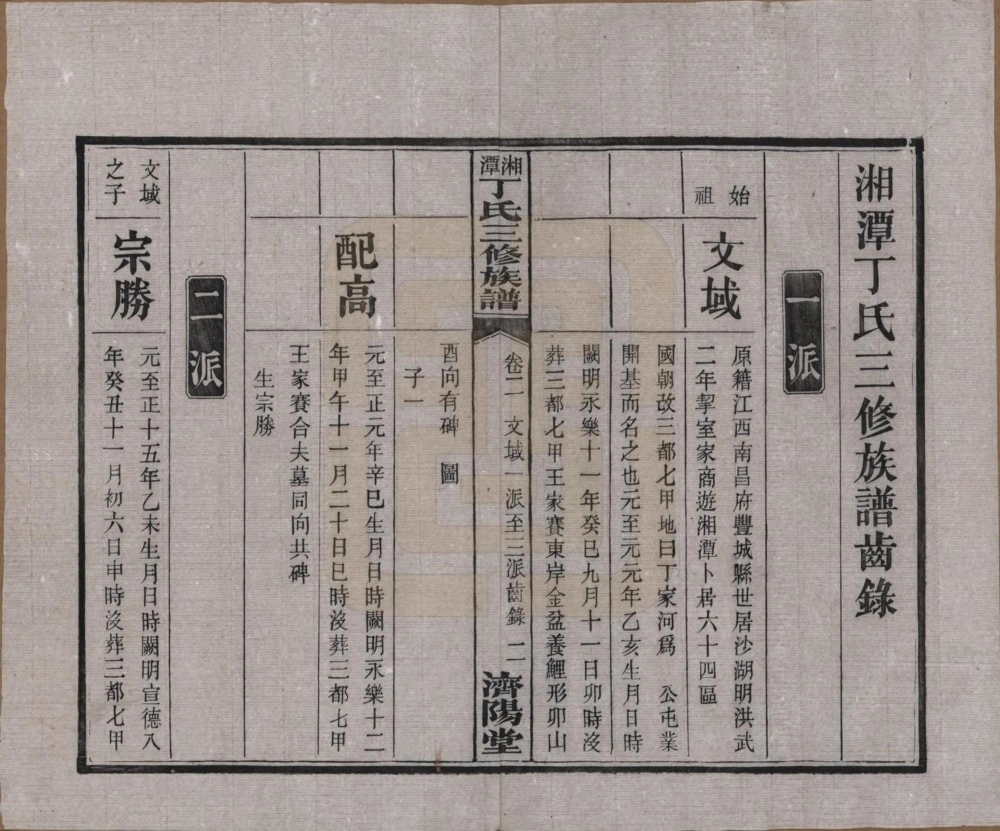 湘潭丁氏三修族譜齒錄
一派
始祖
文域
原籍江西南昌府豐城縣世居沙湖明洪武
二年挈室家商遊湘潭卜居六十四區
國朝改三都七甲地曰丁家河爲 公屯業
開基而名之也元至元元年乙亥生月日時
闕明永樂十一年癸巳九月十一日卯時沒
葬三都七甲王家賽東岸金盆養鯉形卯山
湘潭丁氏三修族譜
卷二 文域一派至三派齒錄 二
濟陽堂
酉向有碑 圖
子一
配高
元至正元年辛巳生月日時闕明永樂十二
年甲午十一月二十日巳時沒葬三都七甲
王家賽合夫墓同向共碑
生宗勝
二派
文域之子
宗勝
元至正十五年乙未生月日時闕明宣德八
年癸丑十一月初六日申時沒葬三都七甲